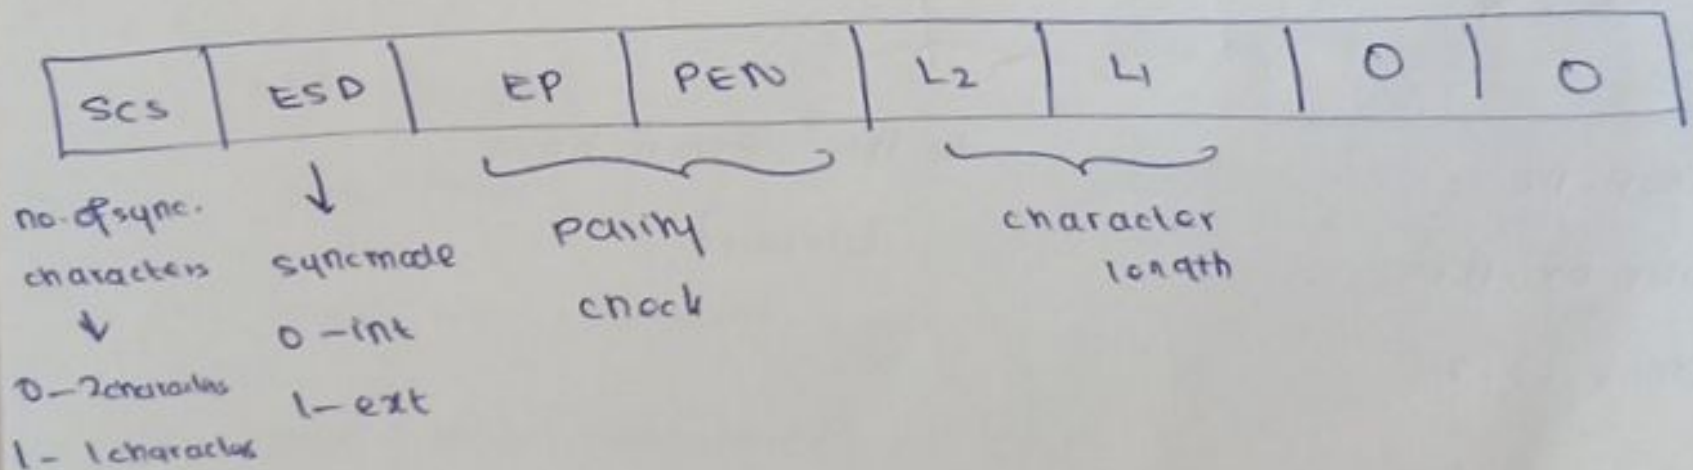 SCS ESD EP PEN L2 L1 0 0
no. of sync.
characters
0 - 2 characters
1 - 1 character
sync mode
0 - int
1 - ext
parity
check
character
length